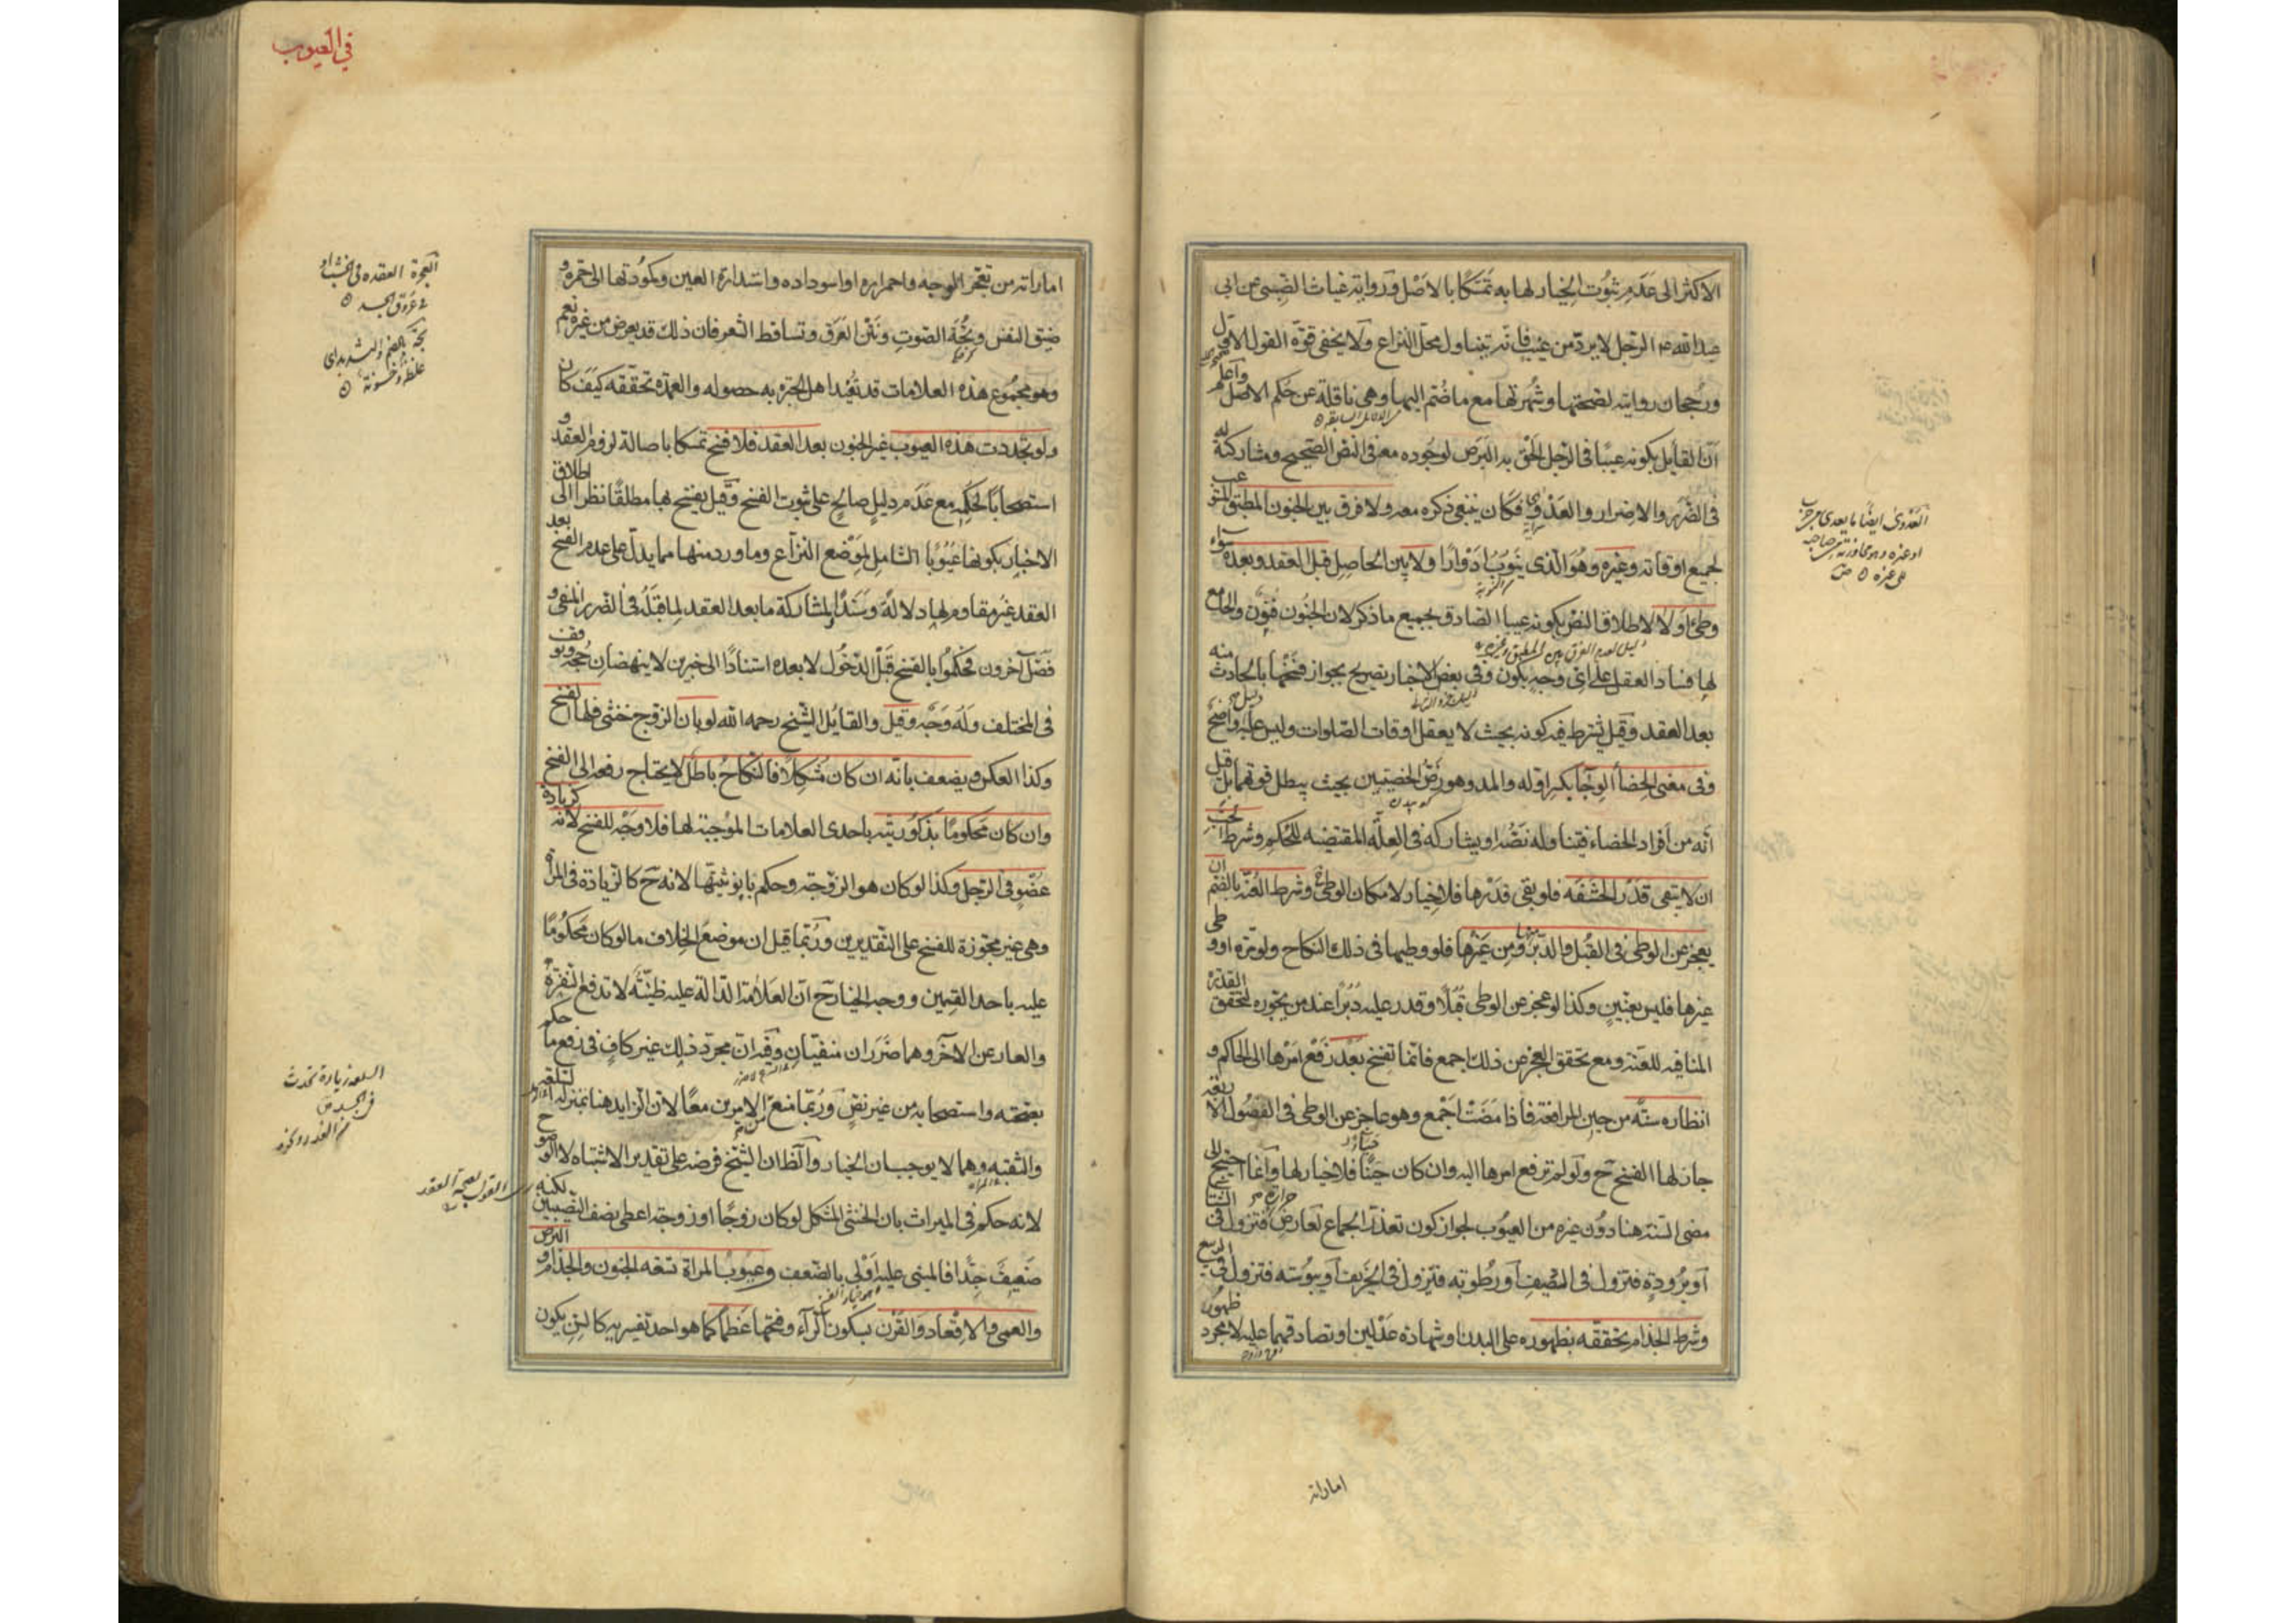 الاكثر الى عدم ثبوت الخيار لها به تمسكا بالاصل ورواية غياث الضبى عن ابى
عبد الله ع الرجل لا يرد من عيب فانه يتناول محل النزاع ولا يخفى قوة القول الاول
ورجحان روايته لصحتها وشهرتها مع ما ضم اليها وهى ناقلة عن حكم الاصل واعلم
ان القائل بكونه عيبا فى الرجل الحق به البرص لوجوده معه فى النص الصحيح ومشاركته له
فى الضرر والاضرار والعدوى فكان ينبغى ذكره معه ولا فرق بين الجنون المطبق المستوعب
لجميع اوقاته وغيره وهو الذى ينوب ادوارا ولا بين الحاصل قبل العقد وبعده سواء
وطئ اولا لاطلاق النص بكونه عيبا الصادق بجميع ما ذكر لان الجنون فنون والجامع
لها فساد العقل على اى وجه يكون وفى بعض الاخبار تصريح بجواز فسخها بالحادث منه
بعد العقد وقيل يشترط فيه كونه بحيث لا يعقل اوقات الصلوات وليس عليه دليل واضح
وفى معنى الخصاء الوجاء بكسر اوله والمد وهو رض الخصيتين بحيث يبطل قوتهما بل قيل
انه من افراد الخصاء فيتناوله نصه او يشاركه فى العلة المقتضيه للحكم وشرط الجب
ان لا يبقى قدر الحشفه فلو بقى قدرها فلا خيار لامكان الوطئ ح وشرط العنة بالضم ان
يعجز عن الوطى فى القبل والدبر منها ومن غيرها فلو وطيها فى ذلك النكاح ولو مره او وطى
غيرها فليس بعنين وكذا لو عجز عن الوطى قبلا وقدر عليه دبرا عند من يجوزه لتحقق القدرة
المنافيه للعنه ومع تحقق العجز عن ذلك اجمع فانما تفسخ بعد رفع امرها الى الحاكم و
انظاره سنة من حين المرافعة فاذا مضت اجمع وهو عاجز عن الوطى فى الفصول الاربعه
جاز لها الفسخ ح ولو لم ترفع امرها اليه وان كان حياء فلا خيار لها وانما احتيج الى
مضى السنة هنا دون غيره من العيوب لجواز كون تعذر الجماع لعارض حرارة فتزول فى الشتا
او برودة فتزول فى الصيف او رطوبه فتزول فى الخريف او يبوسته فتزول فى الربيع
وشرط الجذام تحققه بظهوره على البدن او شهادة عدلين او تصادقهما عليه لا مجرد ظهور
اماراته
العدوى ايضا ما يعدى من جرب
او غيره وهو مجاوزته من صاحبه
الى غيره ص
فى العيوب
اماراته من تعجر الوجه واحمراره او اسوداده واستدارة العين وكمودتها الى حمره و
ضيق النفس وبحة الصوت ونتن العرق وتساقط الشعر فان ذلك قد يعرض من غيره نعم
وهو مجموع هذه العلامات قد تفيد اهل الخبره به حصوله والعمدة تحققه كيف كان
ولو تجددت هذه العيوب غير الجنون بعد العقد فلا فسخ تمسكا باصالة لزوم العقد و
استصحابا لحكمه مع عدم دليل صالح على ثبوت الفسخ وقيل يفسخ بها مطلقا نظرا الى اطلاق
الاخبار بكونها عيوبا الشامل لموضع النزاع وما ورد منها مما يدل على عدم الفسخ بعد
العقد غير مقاوم لها دلالة وسندا ولمشاركة ما بعد العقد لما قبله فى الضرر المنفى و
فصل آخرون فحكموا بالفسخ قبل الدخول لا بعده استنادا الى خبرين لا ينهضان حجة وتوقف
فى المختلف وله وجه وقيل والقايل الشيخ رحمه الله لو بان الزوج خنثى فلها الفسخ
وكذا العكس ويضعف بانه ان كان مشكلا فالنكاح باطل لا يحتاج رفعه الى الفسخ
وان كان محكوما بذكوريته باحدى العلامات الموجبة لها فلا وجه للفسخ لانه كزيادة
عضو فى الرجل وكذا لو كان هو الزوجة وحكم بانوثيتها لانه ح كالزيادة فى المراة
وهى غير مجوزة للفسخ على التقديرين وربما قيل ان موضع الخلاف ما لو كان محكوما
عليه باحد القسمين ووجه الخيار ح ان العلامة الدالة عليه ظنية لا تدفع النفرة
والعار عن الاخر وهما ضرران منفيان وفيه ان مجرد ذلك غير كاف فى رفع ما حكم
بصحته واستصحابه من غير نص وربما منع من الامرين معا لان الزايد هنا بمنزلة السلعة
والثقبه وهما لا يوجبان الخيار والظ ان الشيخ فرضه على تقدير الاشتباه لا الوضوح
لانه حكم فى الميراث بان الخنثى المشكل لو كان زوجا او زوجة اعطى نصف النصيبين لكنه
ضعيف جدا فالمبنى عليه اولى بالضعف وعيوب المراة تسعه الجنون والجذام و البرص
والعمى والاقعاد والقرن بسكون الرآء وفتحها عظما كما هو احد تفسيريه كالسن يكون
العجرة العقده فى الخشب او
فى عروق الجسد
بحة بالضم والتشديد اى
غلظة وخشونة
السلعه زيادة تحدث
فى الجسد